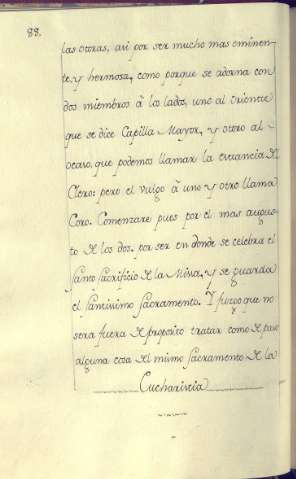 88.
las otoras, asi por ser mucho mas eminen-
te, y hermosa, como porque se adorna con
dos miembros à los lados, uno al oriente
que se dice Capilla Mayor, y otoro al
ocaso, que podemos llamar la estancia del
Clero: pero el vulgo à uno y otro llama
Coro. Comenzare pues por el mas augus-
to de los dos, por ser en donde se celebra el
santo sacrificio de la Missa, y se guarda
el santissimo sacramento. Y juzgo que no
sera fuera de proposito tratar como de paso
alguna cosa del mismo sacramento de la
Eucharistia